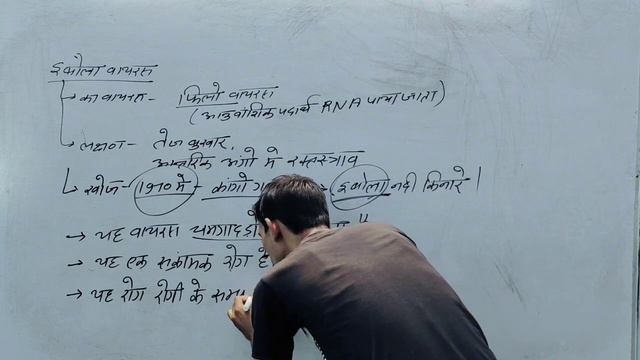 इबोला वायरस
का वायरस - फिलो वायरस
(आनुवांशिक पदार्थ RNA पाया जाता)
लक्षण - तेज बुखार,
आन्तरिक अंगो मे रक्तस्त्राव
खोज - 1970 मे - कांगो इबोला नदी किनारे |
→ यह वायरस चमगादडो
→ यह एक संक्रामक रोग है
→ यह रोग रोगी के